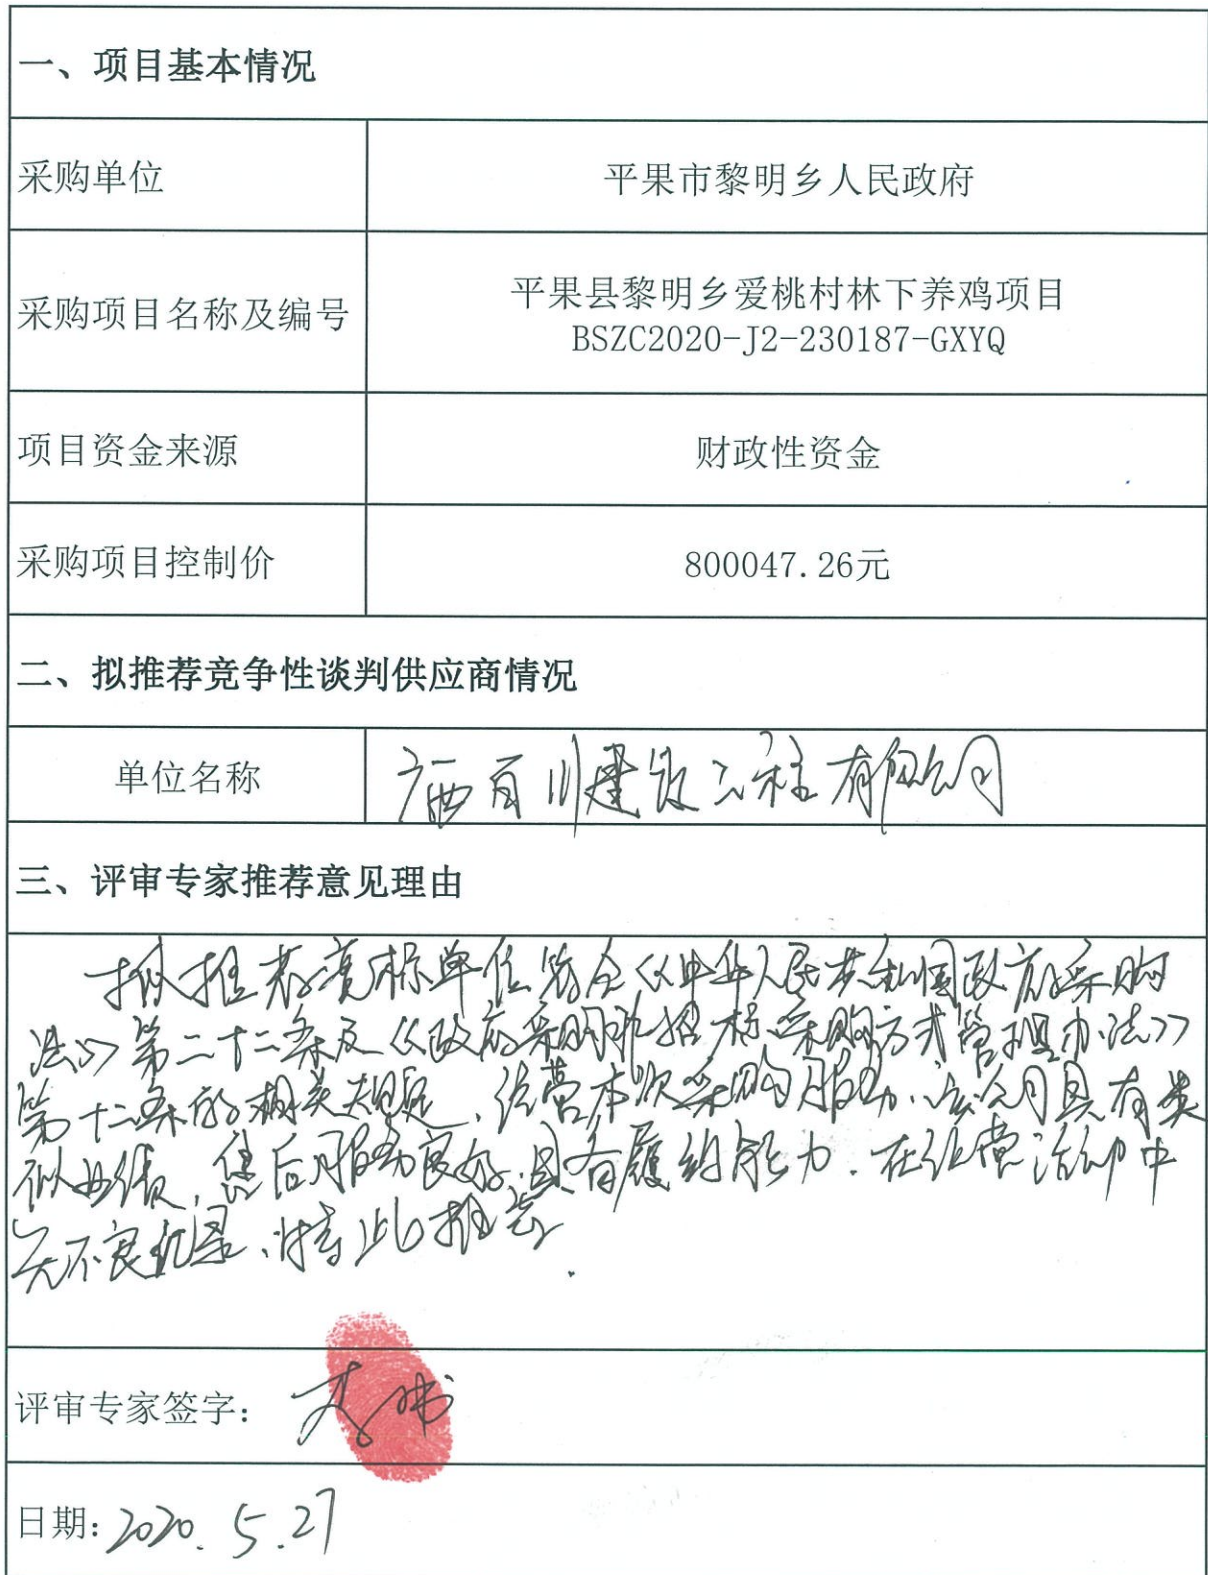 一、项目基本情况
采购单位
平果市黎明乡人民政府
采购项目名称及编号
平果县黎明乡爱桃村林下养鸡项目
BSZC2020-J2-230187-GXYQ
项目资金来源
财政性资金
采购项目控制价
800047.26元
二、拟推荐竞争性谈判供应商情况
单位名称
广西百川建设工程有限公司
三、评审专家推荐意见理由
拟推荐竞标单位符合《中华人民共和国政府采购
法》第二十二条及《政府采购非招标采购方式管理办法》
第十二条的相关规定,经营本次采购服务,该公司具有类
似业绩,售后服务良好,具有履约能力.在经营活动中
无不良纪录,特此推荐.
评审专家签字:
日期:2020.5.27